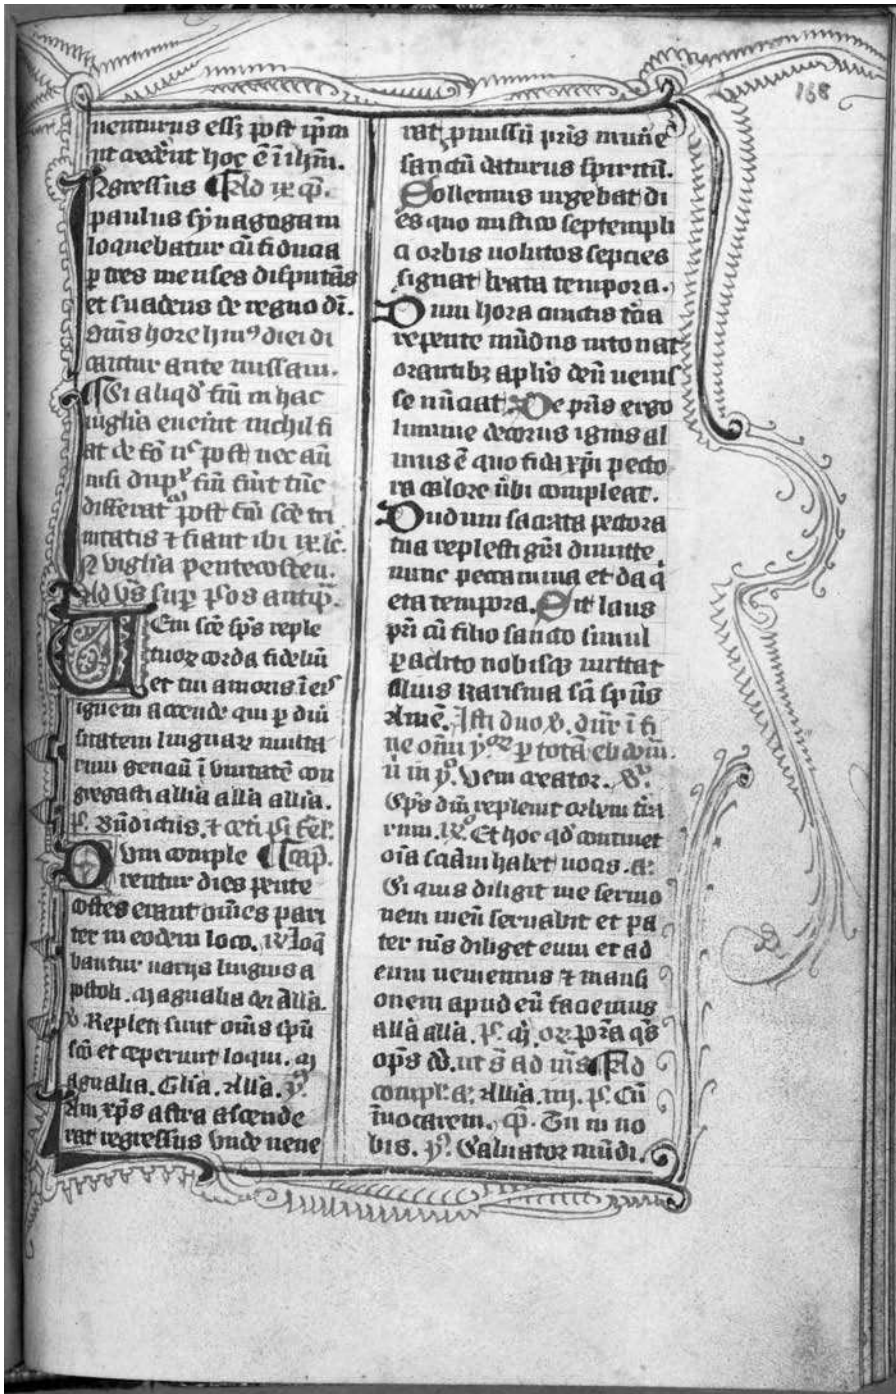 168
uenturus ess3 post ip̄m
ut crederēt hoc ē ī ih̄m.
INgressus Ad ix cp̄.
paulus synagogam
loquebatur cū fiducia
p tres menses disputās
et suadens de regno dī.
Om̄s hore hui⁹ diei di
cantur ante missam.
Si aliqd̄ fm̄ in hac
uiglia euenit nichil fi
at de eo nec post nec añ
nisi dup̄ fm̄ fūit tūc
differat᷑ post fm̄ scē tri
nitatis ⁊ fiant ibi ix. lc̄.
In uigl̄ia pentecosten.
Ad vs̄ sup̄ psos antiph̄.
Veni scē sp̄s reple
tuoꝝ corda fideliū
et tui amoris ī eis
ignem accende qui p diū
sitatem linguaꝝ multa
rum genciū ī vnitatē con
gregasti allīa allīa allīa.
ps. Bn̄dictus. ⁊ cet̄i ps̄i fer̄.
Dum comple Cap̄.
rentur dies pente
costes erant om̄es pari
ter in eodem loco. R̄ Loq̄
bantur uarijs linguis a
postoli. Magnalia dei Allīa.
v̄. Repleti sunt om̄s sp̄u
sco et ceperunt loqui. M
agnalia. Glīa. Allīa. ym̄.
Iam xp̄s astra ascende
rat regressus vnde uene
rat p̄missū p̄ris mun̄e
sanctū daturus spiritū.
Sollemnis urgebat di
es quo mistico septempli
ci orbis uolutos septies
signat beata tempora.
Dum hora cunctis t̄cia
repente mūdus intonat
orantib3 ap̄lis deū uenis
se nūciat. De p̄ris ergo
lumine decorus ignis al
mus ē quo fida xp̄i pecto
ra calore ūbi compleat.
Dudum sacrata pectora
tua replesti gr̄a dimitte
nunc peccamina et da q̄
eta tempora. Sit laus
p̄ri cū filio sancto simul
paclito nobisq3 mittat
filius karisma sc̄i sp̄ūs
Amē. Isti duo v̄. dn̄r ī fi
ne om̄i ymoꝝ p totā ebdom̄.
n̄ in ym̄. Veni creator. v̄s.
Sp̄s dn̄i repleuit orbem t̄ra
rum. R̄. Et hoc qd̄ continet
oīa sciam̄ habet uocis. a:
Si quis diligit me sermo
nem meū seruabit et pa
ter m̄s diliget eum et ad
eum ueniemus ⁊ mansi
onem apud eū faciemus
allīa allīa. ps. M. or̄. p̄sta qs̄
op̄s ds̄. ut s̄ ad m̄s Ad
compl̄. a: Allīa. iiij. ps. Cū
īuocarem. cp̄. Tu in no
bis. ym̄. Saluator mūdi.